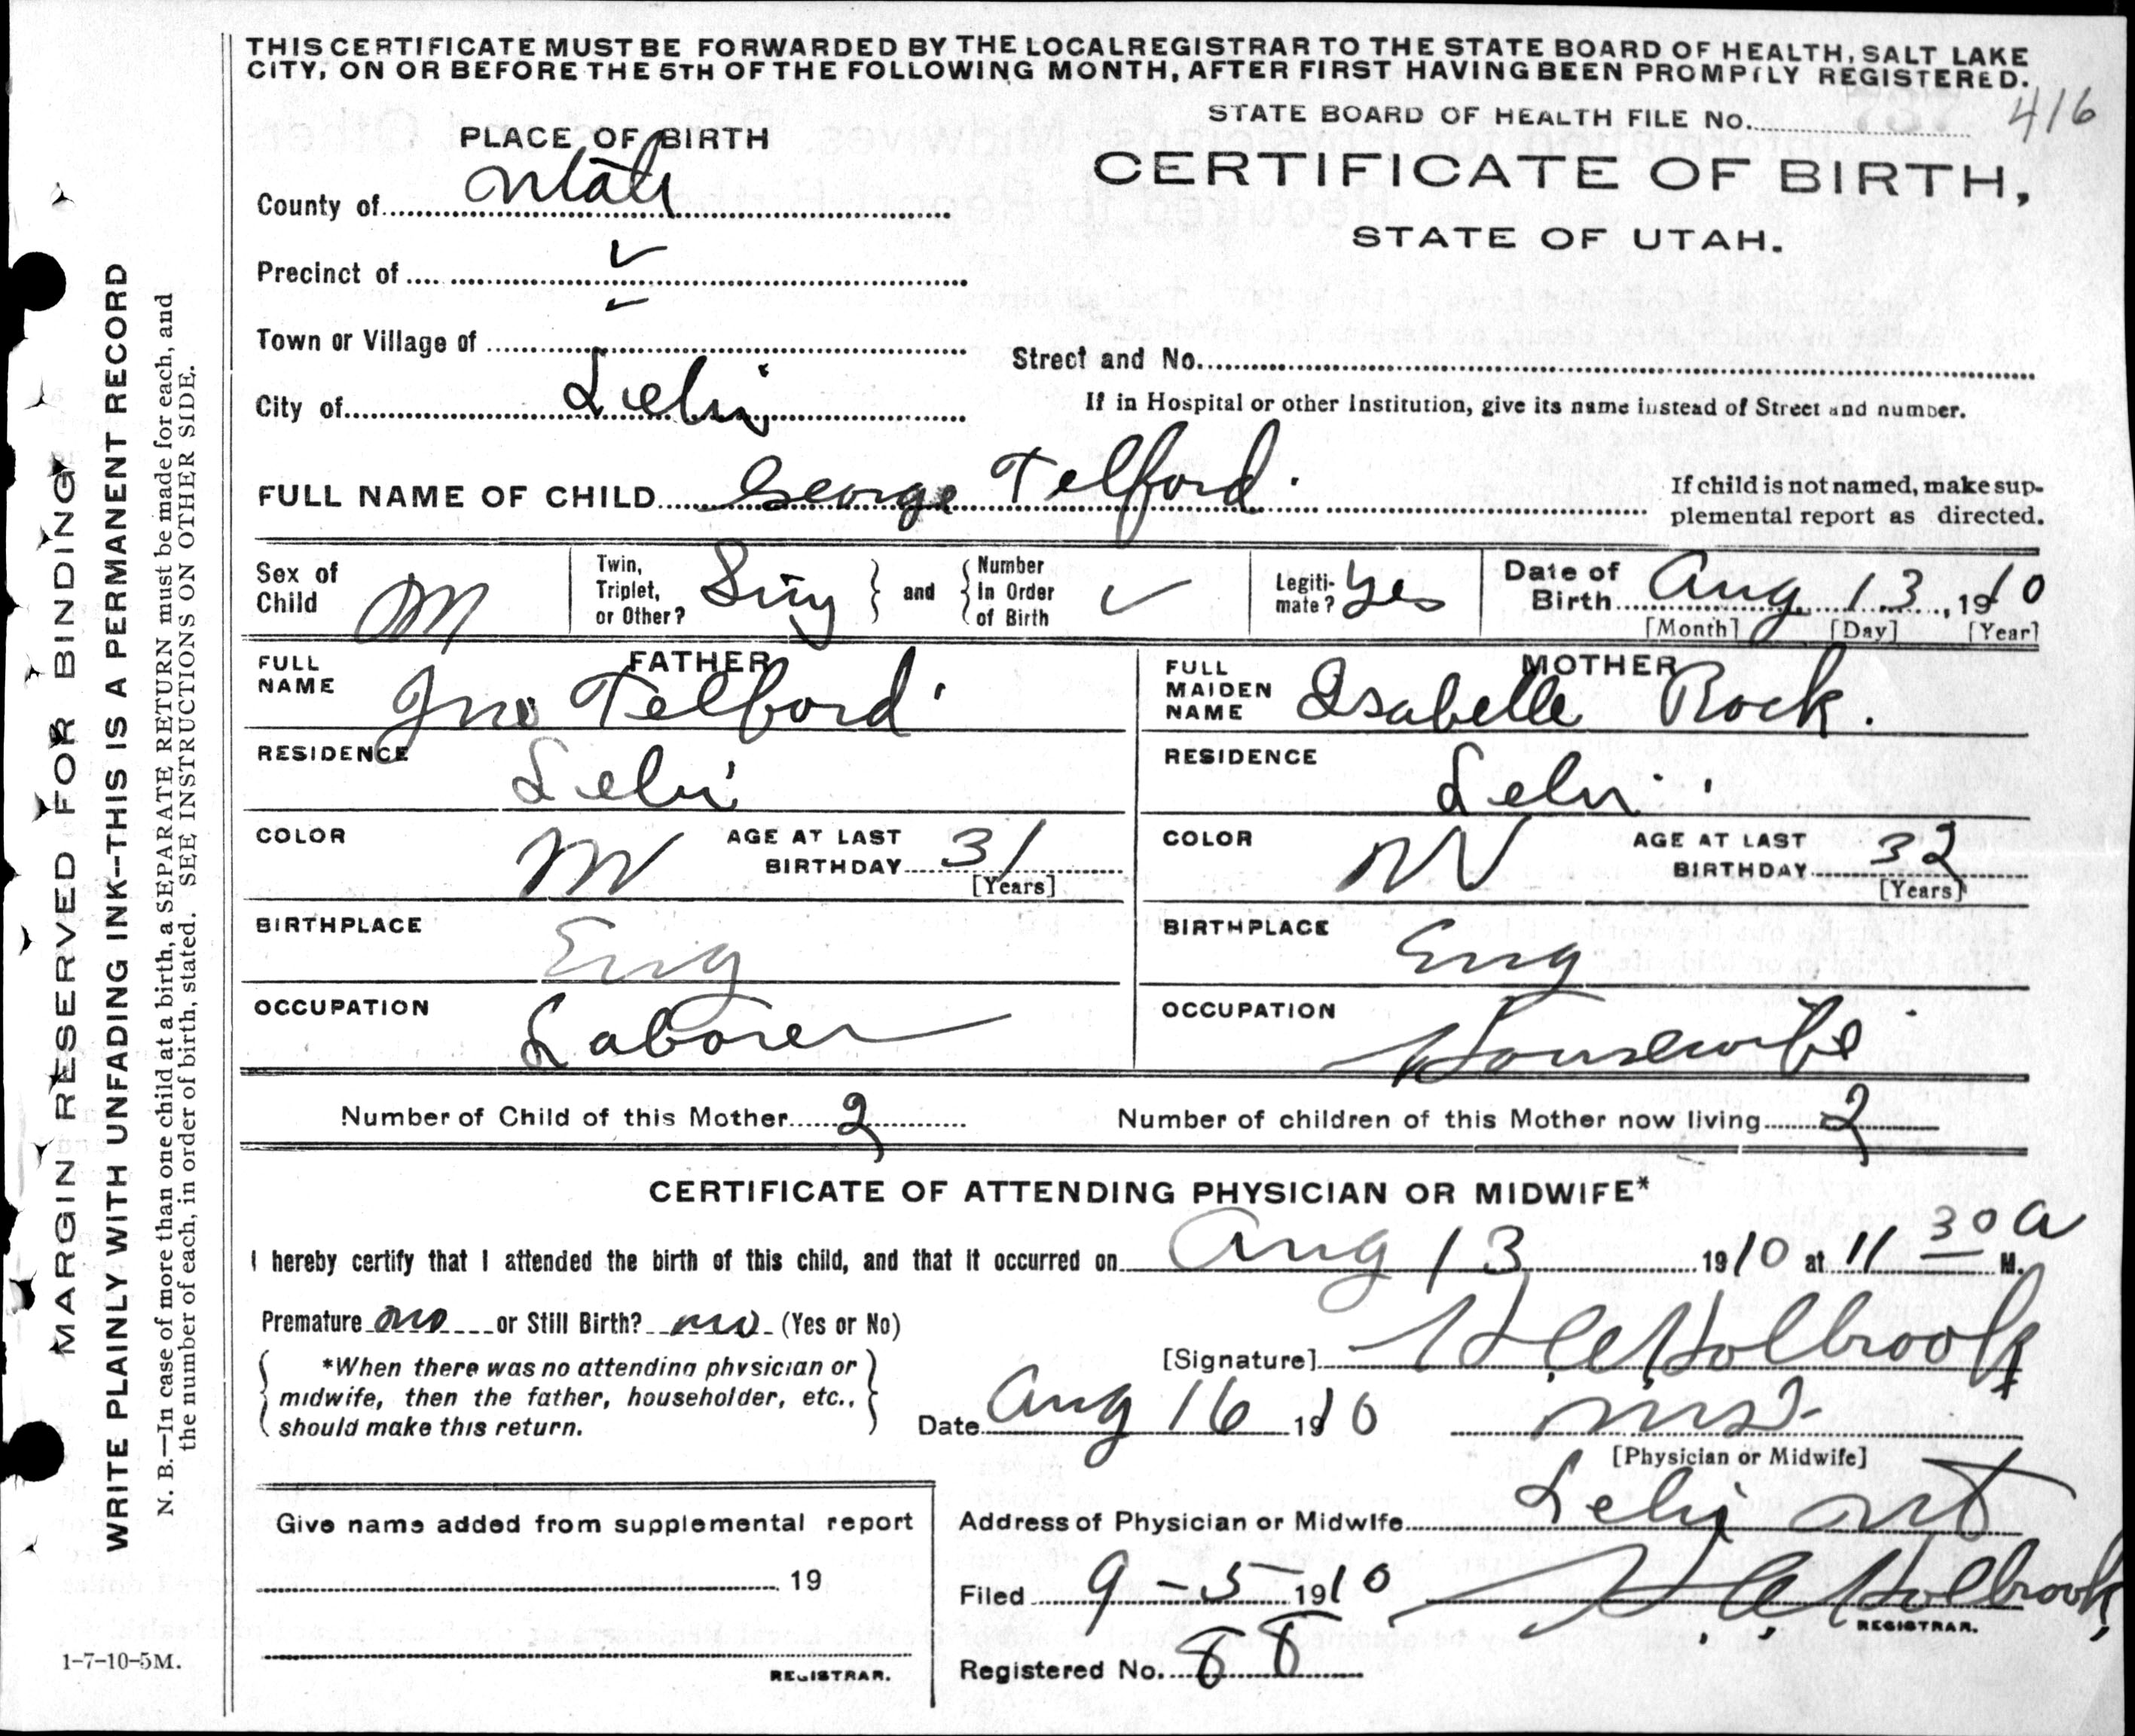 THIS CERTIFICATE MUST BE FORWARDED BY THE LOCAL REGISTRAR TO THE STATE BOARD OF HEALTH, SALT LAKE
CITY, ON OR BEFORE THE 5TH OF THE FOLLOWING MONTH, AFTER FIRST HAVING BEEN PROMPTLY REGISTERED.
STATE BOARD OF HEALTH FILE No. 416
PLACE OF BIRTH
CERTIFICATE OF BIRTH,
STATE OF UTAH.
County of Utah
Precinct of ✓
Town or Village of ✓
Street and No.
City of Lehi
If in Hospital or other Institution, give its name instead of Street and number.
FULL NAME OF CHILD George Telford.
If child is not named, make sup-
plemental report as directed.
Sex of Child M
Twin, Triplet, or Other? Sing and Number In Order of Birth ✓
Legiti-mate? Yes
Date of Birth Aug 13, 1910
[Month] [Day] [Year]
FATHER
FULL NAME Jno Telford
RESIDENCE Lehi
COLOR W AGE AT LAST BIRTHDAY 31
[Years]
BIRTHPLACE Eng
OCCUPATION Laborer
MOTHER
FULL MAIDEN NAME Isabelle Rock.
RESIDENCE Lehi
COLOR W AGE AT LAST BIRTHDAY 32
[Years]
BIRTHPLACE Eng
OCCUPATION Housewife
Number of Child of this Mother 2 Number of children of this Mother now living 2
CERTIFICATE OF ATTENDING PHYSICIAN OR MIDWIFE*
I hereby certify that I attended the birth of this child, and that it occurred on Aug 13 1910 at 11 30 a M.
Premature no or Still Birth? no (Yes or No)
*When there was no attending physician or
midwife, then the father, householder, etc.,
should make this return.
[Signature] H. C. Holbrook
Date Aug 16 1910
[Physician or Midwife]
Give name added from supplemental report
19
REGISTRAR.
Address of Physician or Midwife Lehi Ut
Filed 9-5 1910 H. C. Holbrook
REGISTRAR.
Registered No. 88
1-7-10-5M.
MARGIN RESERVED FOR BINDING
WRITE PLAINLY WITH UNFADING INK--THIS IS A PERMANENT RECORD
N. B.—In case of more than one child at a birth, a SEPARATE RETURN must be made for each, and
the number of each, in order of birth, stated. SEE INSTRUCTIONS ON OTHER SIDE.